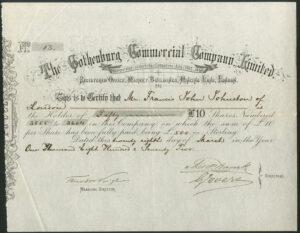 No. 13.
The Gothenburg Commercial Company, Limited
Registered Office, Market Buildings, Mincing Lane, London.
This is to Certify that Mr. Francis John Johnston of
London
the Holder of Fifty £10 Shares Numbered
in the Company; on which the sum of £10
per Share has been fully paid being £500. in Sterling
Dated this twenty eighth day of March in the Year
One Thousand Eight Hundred & Seventy Two
Managing Director.
Directors.